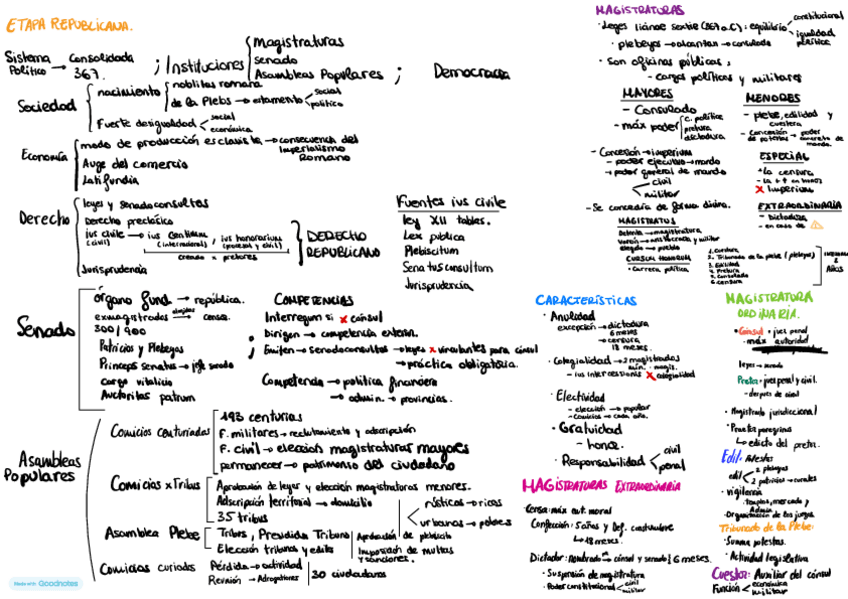 ETAPA REPUBLICANA.
Sistema Político → Consolidada 367. ; Instituciones
Magistraturas
senado
Asambleas Populares ; Democracia
Sociedad
nacimiento
nobilitas romana
de la Plebs → estamento
social
político
Fuerte desigualdad
social
económica
Economía
modo de producción esclavista → consecuencia del Imperialismo Romano
Auge del comercio
Latifundia
Derecho
leyes y senadoconsultos
Derecho preclásico
ius civile (civil) → ius gentium (internacional), ius honorarium
creado x pretores
Jurisprudencia
DERECHO REPUBLICANO
Fuentes ius civile
ley XII tables.
Lex publica
Plebiscitum
Senatusconsultum
Jurisprudencia
Senado
órgano fund → república.
exmagistrados → censor.
300/900
Patricios y Plebeyos
Princeps senatus → jefe senado
cargo vitalicio
Auctoritas patrum
COMPETENCIAS
Interregnum si x cónsul
Dirigen → competencia exterior.
Emiten → senadoconsultos → leyes x vinculantes para cónsul
→ práctica obligatoria.
Competencia → política financiera
→ admin. → provincias.
Asambleas Populares
Comicios centuriados
193 centurias
F. militares → reclutamiento y adscripción
F. civil → elección magistraturas mayores
permanecer → patrimonio del ciudadano
Comicios x Tribus
Aprobación de leyes y elección magistraturas menores.
Adscripción territorial → domicilio
35 tribus
rústicas → ricos
urbanas → pobres
Asamblea Plebe
Tribus, Presidida Tribuno
Elección tribunos y ediles
Aprobación de plebiscito
Imposición de multas y sanciones.
Comicios curiados
Pérdida → actividad
Reunión → Adrogationes
30 ciudadanos
Made with Goodnotes
MAGISTRATURAS
· Leyes licinae sextie (367 a.C): equilibrio
constitucional
igualdad política
· plebeyos → alcanzan → consulado
· Son oficinas públicas,
- cargos políticos y militares
MAYORES
- Consulado
- máx poder
c. política
pretura
dictadura
- Concesión → imperium
- poder ejecutivo → mando
→ poder general de mando
civil
militar
- Se concedía de forma divina.
MAGISTRATUS
elegido → pueblo
CURSUS HONORUM
· Carrera política
1. Cuestura
2. Tribunado de la plebe (plebeyos)
3. Edilidad
4. Pretura
5. Consulado
6. Censura
AÑOS
MENORES
- plebe, edilidad y cuestura
- Concesión de potestas → poder concreto de mando.
ESPECIAL
+ La censura
x Imperium
EXTRAORDINARIA
- Dictadura
- en caso de
CARACTERÍSTICAS
· Anualidad
excepción → dictadura
6 meses
→ censura
18 meses.
· Colegialidad → 2 magistrados
min. magis.
- ius intercessionis x colegialidad
· Electividad
- elección → popular
- Comicios → cada año.
· Gratuidad
- honor.
· Responsabilidad
civil
penal
MAGISTRATURAS EXTRAORDINARIA
· Censor: máx aut. moral
Confección: 5 años y Def. costumbre
↳ 18 meses.
Dictador: Nombrado → cónsul y senado 6 meses.
· Suspensión de magistratura
· Poder constitucional
civil
militar
MAGISTRATURA ORDINARIA.
· Cónsul · jues penal
· máx autoridad
leyes → senado
Pretor: juez penal y civil.
- después de cónsul
· Magistrado jurisdiccional
· Pretor peregrinos
↳ edicto del pretor.
Edil: Potestas
edil
2 plebeyos
2 patricios → curules
· vigilancia
templos, mercado y
· Organización de los juegos.
Tribunado de la Plebe:
· Summa potestas.
· Actividad legislativa
Cuestor: Auxiliar del cónsul
Función
económica
militar